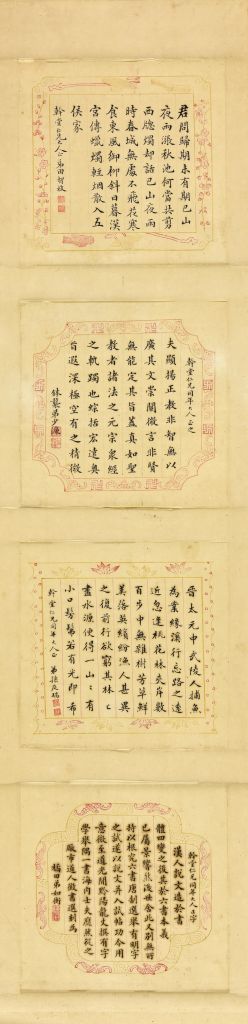 君問歸期未有期巴山
夜雨漲秋池何當共剪
西牕燭却話巴山夜雨
時春城無處不飛花寒
食東風御柳斜日暮漢
宮傳蠟燭輕烟散入五
侯家
幹堂仁兄大人正 弟田智枚
幹堂仁兄同年大人正之
夫顯揚正教非智無以
廣其文崇闡微言非賢
無能定其旨蓋真如聖
教者諸法之元宗衆經
之軌躅也綜括宏遠奥
旨遐深極空有之精微
弟少
晉太元中武陵人捕魚
為業緣溪行忘路之遠
近忽逢桃花林夾岸數
百步中無雜樹芳草鮮
美落英繽紛漁人甚異
之復前行欲窮其林林
盡水源便得一山山有
小口髣髴若有光即
幹堂仁兄同年大人正 弟
幹堂仁兄同年大人正字
漢人說文遠於書
體四變之後其於六書本義
已屬景響然後世舍此又別無所
持以根究六書唐制選舉有明字
之試遂以說文并入試帖功令用
意微至道光間黔陽龍文撰有字
學舉隅一書海内士夫靡然從之
廠市道人徵書選刻為
弟